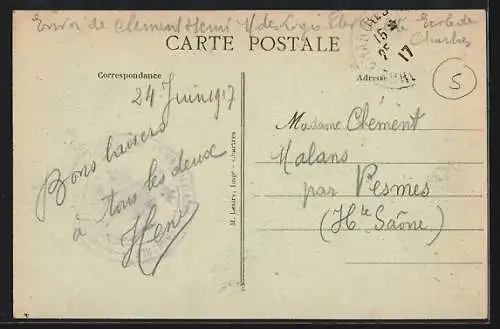 Envoi de Clement Henri M des Logis Ecole de
Chartres
CARTE POSTALE
Correspondance
Adresse
15
25
17
5
24 Juin 1917
Bons baisers
à tous les deux
Henri
M. Lenfry, Impr - Chartres
Madame Clément
Malans
par Pesmes
(Hte Saône)